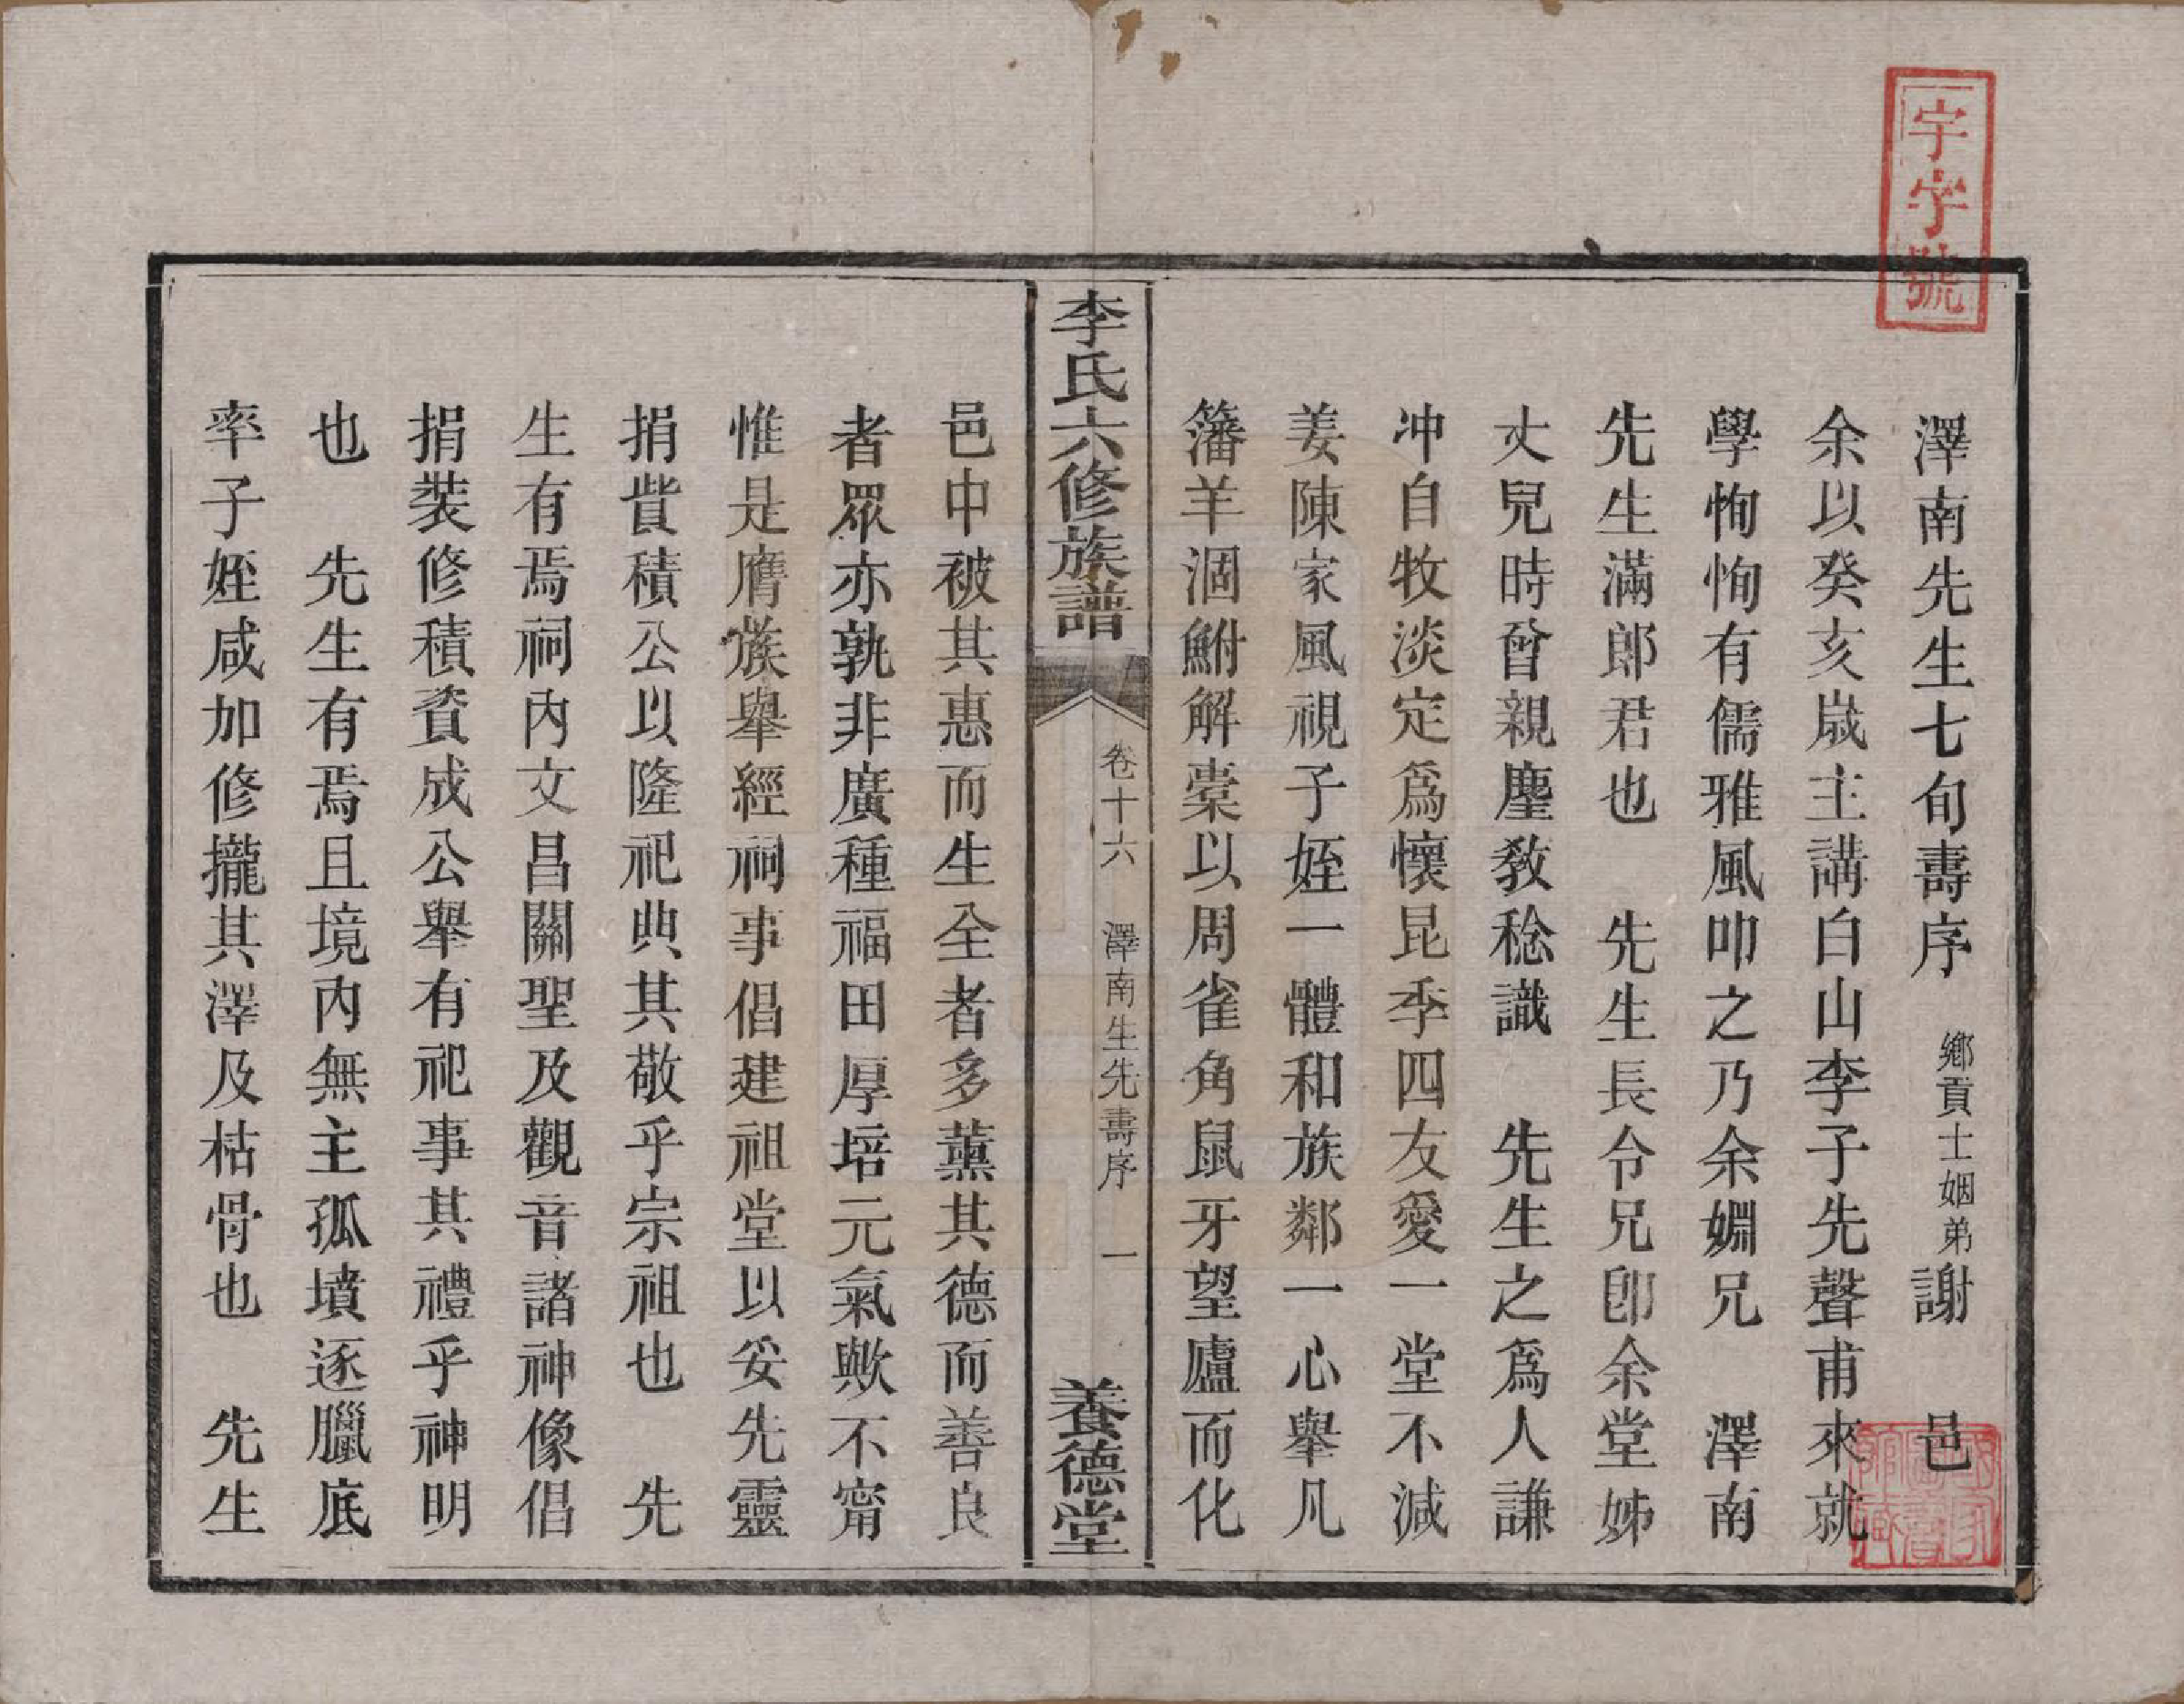 宇字號
澤南先生七旬壽序　鄉貢士姻弟謝　邑
余以癸亥歲主講白山李子先聲甫來就
學恂恂有儒雅風叩之乃余婣兄　澤南
先生滿郎君也　先生長令兄卽余堂姊
丈兒時曾親塵敎稔識　先生之爲人謙
冲自牧淡定爲懷昆季四友愛一堂不減
姜陳家風視子姪一體和族鄰一心舉凡
籓羊涸鮒解橐以周雀角鼠牙望廬而化
李氏六修族譜
卷十六　澤南生先壽序　一
養德堂
邑中被其惠而生全者多薰其德而善良
者眾亦孰非廣種福田厚培元氣歟不甯
惟是膺蔟舉經祠事倡建祖堂以妥先靈
捐貲積公以隆祀典其敬乎宗祖也　先
生有焉祠內文昌關聖及觀音諸神像倡
捐裝修積資成公舉有祀事其禮乎神明
也　先生有焉且境內無主孤墳逐臘底
率子姪咸加修攏其澤及枯骨也　先生